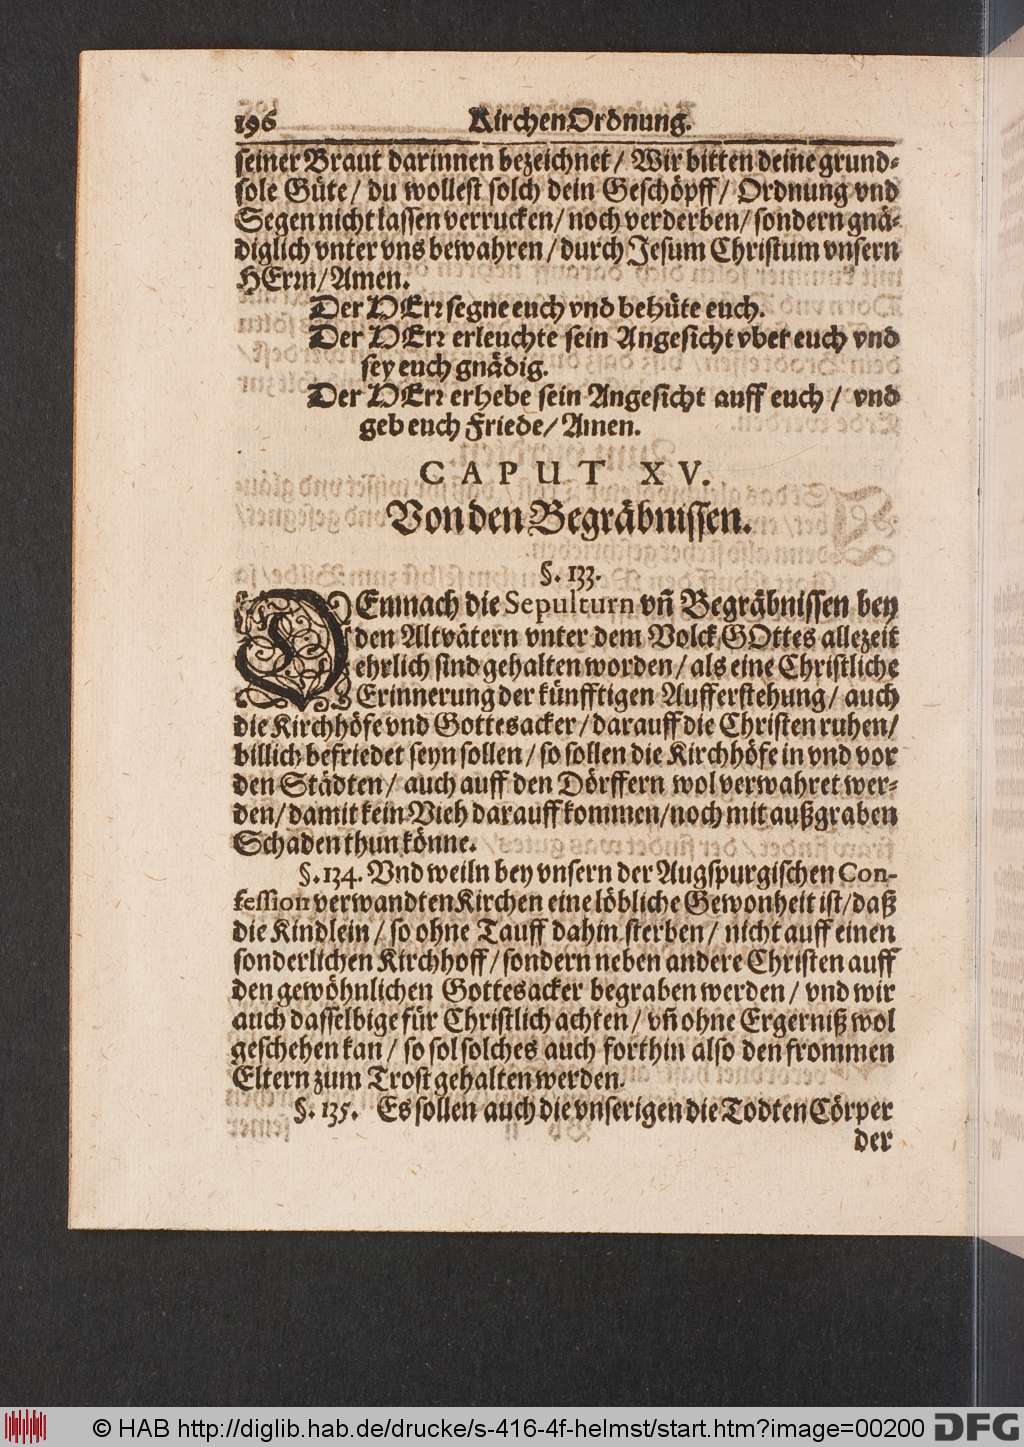 196 KirchenOrdnung.
seiner Braut darinnen bezeichnet / Wir bitten deine grund-
lose Güte / du wollest solch dein Geschöpff / Ordnung vnd
Segen nicht lassen verrucken / noch verderben / sondern gnä-
diglich vnter vns bewahren / durch Jesum Christum vnsern
HErrn / Amen.
Der HErr segne euch vnd behüte euch.
Der HErr erleuchte sein Angesicht vber euch vnd
sey euch gnädig.
Der HErr erhebe sein Angesicht auff euch / vnd
geb euch Friede / Amen.
CAPUT XV.
Von den Begräbnissen.
§. 133.
DEmnach die Sepulturn vñ Begräbnissen bey
den Altvätern vnter dem Volck GOttes allezeit
ehrlich sind gehalten worden / als eine Christliche
Erinnerung der künfftigen Aufferstehung / auch
die Kirchhöfe vnd Gottesacker / darauff die Christen ruhen /
billich befriedet seyn sollen / so sollen die Kirchhöfe in vnd vor
den Städten / auch auff den Dörffern wol verwahret wer-
den / damit kein Vieh darauff kommen / noch mit außgraben
Schaden thun könne.
§. 134. Vnd weiln bey vnsern der Augspurgischen Con-
fession verwandten Kirchen eine löbliche Gewonheit ist / daß
die Kindlein / so ohne Tauff dahin sterben / nicht auff einen
sonderlichen Kirchhoff / sondern neben andere Christen auff
den gewöhnlichen Gottesacker begraben werden / vnd wir
auch dasselbige für Christlich achten / vñ ohne Ergerniß wol
geschehen kan / so sol solches auch forthin also den frommen
Eltern zum Trost gehalten werden.
§. 135. Es sollen auch die vnserigen die Todten Cörper
der
© HAB http://diglib.hab.de/drucke/s-416-4f-helmst/start.htm?image=00200 DFG